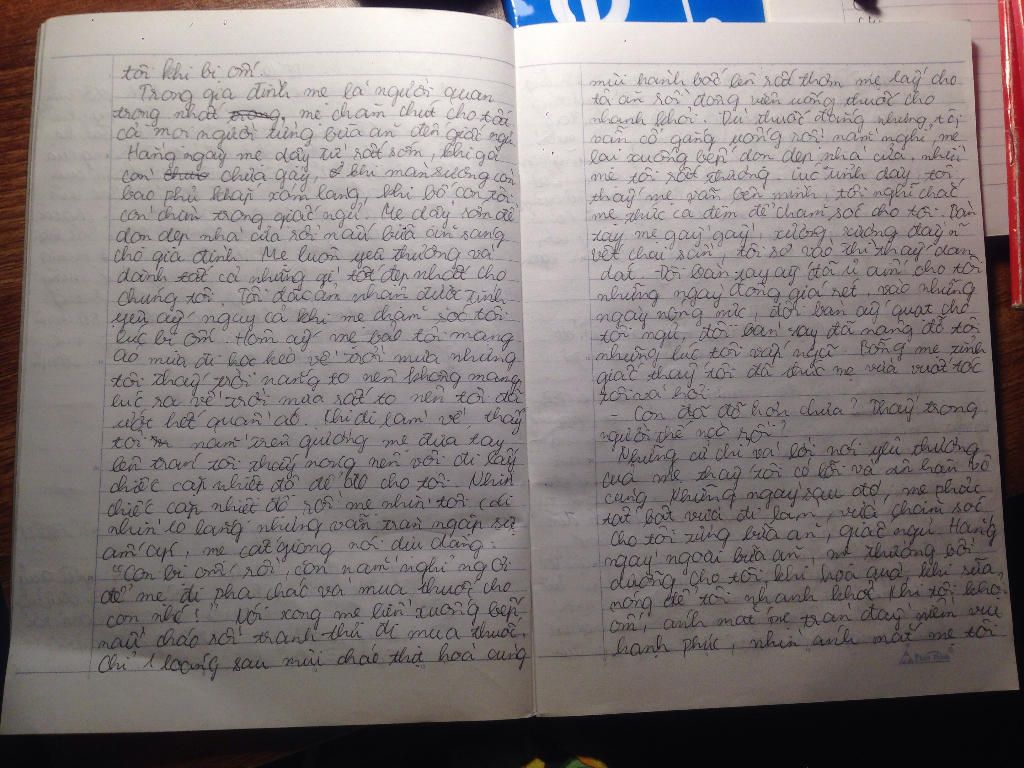 tôi khi bị ốm.
Trong gia đình mẹ là người quan
trọng nhất trong, mẹ chăm chút cho tất
cả mọi người từng bữa ăn đến giấc ngủ.
Hàng ngày mẹ dậy từ rất sớm, khi gà
con chưa gáy, khi màn sương còn
bao phủ khắp xóm làng, khi bố con tôi
còn chìm trong giấc ngủ. Mẹ dậy sớm để
dọn dẹp nhà cửa rồi nấu bữa ăn sáng
cho gia đình. Mẹ luôn yêu thương và
dành tất cả những gì tốt đẹp nhất cho
chúng tôi. Tôi đã cảm nhận được tình
yêu ấy ngay cả khi mẹ chăm sóc tôi
lúc bị ốm. Hôm ấy mẹ bảo tôi mang
áo mưa đi học kẻo về trời mưa nhưng
tôi thấy trời nắng to nên không mang,
lúc ra về trời mưa rất to nên tôi đã
ướt hết quần áo. Khi đi làm về, thấy
tôi nằm trên giường mẹ đưa tay
lên trán tôi thấy nóng nên vội đi lấy
chiếc cặp nhiệt độ để đo cho tôi. Nhìn
chiếc cặp nhiệt độ rồi mẹ nhìn tôi, cái
nhìn lo lắng nhưng vẫn tràn ngập sự
ấm áp, mẹ cất giọng nói dịu dàng:
"Con bị ốm rồi, con nằm nghỉ ngơi
để mẹ đi pha cháo và mua thuốc cho
con nhé!" Nói xong mẹ liền xuống bếp
nấu cháo rồi tranh thủ đi mua thuốc.
Chỉ 1 loáng sau mùi cháo thịt hoà cùng
mùi hành bốc lên rất thơm, mẹ lấy cho
tôi ăn rồi động viên uống thuốc cho
nhanh khỏi. Dù thuốc đắng nhưng tôi
vẫn cố gắng uống rồi nằm nghỉ, mẹ
lại xuống bếp dọn dẹp nhà cửa, nhìn
mẹ tôi rất thương. Lúc tỉnh dậy, tôi
thấy mẹ vẫn bên mình, tôi nghĩ chắc
mẹ thức cả đêm để chăm sóc cho tôi. Bàn
tay mẹ gầy gầy, xương xương đầy
vết chai sần, tôi sờ vào thì thấy dan
dát. Đôi bàn tay ấy đã ủ ấm cho tôi
những ngày đông giá rét, vào những
ngày nóng nực, đôi bàn ấy quạt cho
tôi ngủ, đôi bàn tay đã nâng đỡ tôi
những lúc tôi vấp ngã. Bỗng mẹ tỉnh
giấc thấy tôi đã thức mẹ vừa vuốt tóc
tôi và hỏi:
- Con đã đỡ hơn chưa? Thấy trong
người thế nào rồi?
Những cử chỉ và lời nói yêu thương
của mẹ thấy tôi có lỗi và ân hận vô
cùng. Những ngày sau đó, mẹ phải
tất bật vừa đi làm, vừa chăm sóc
cho tôi từng bữa ăn, giấc ngủ. Hàng
ngày ngoài bữa ăn mẹ thường bồi
dưỡng cho tôi, khi hoa quả, khi sữa
nóng để tôi nhanh khỏi. Khi tôi khỏi
ốm, ánh mắt mẹ tràn đầy niềm vui
hạnh phúc, nhìn ánh mắt mẹ tôi